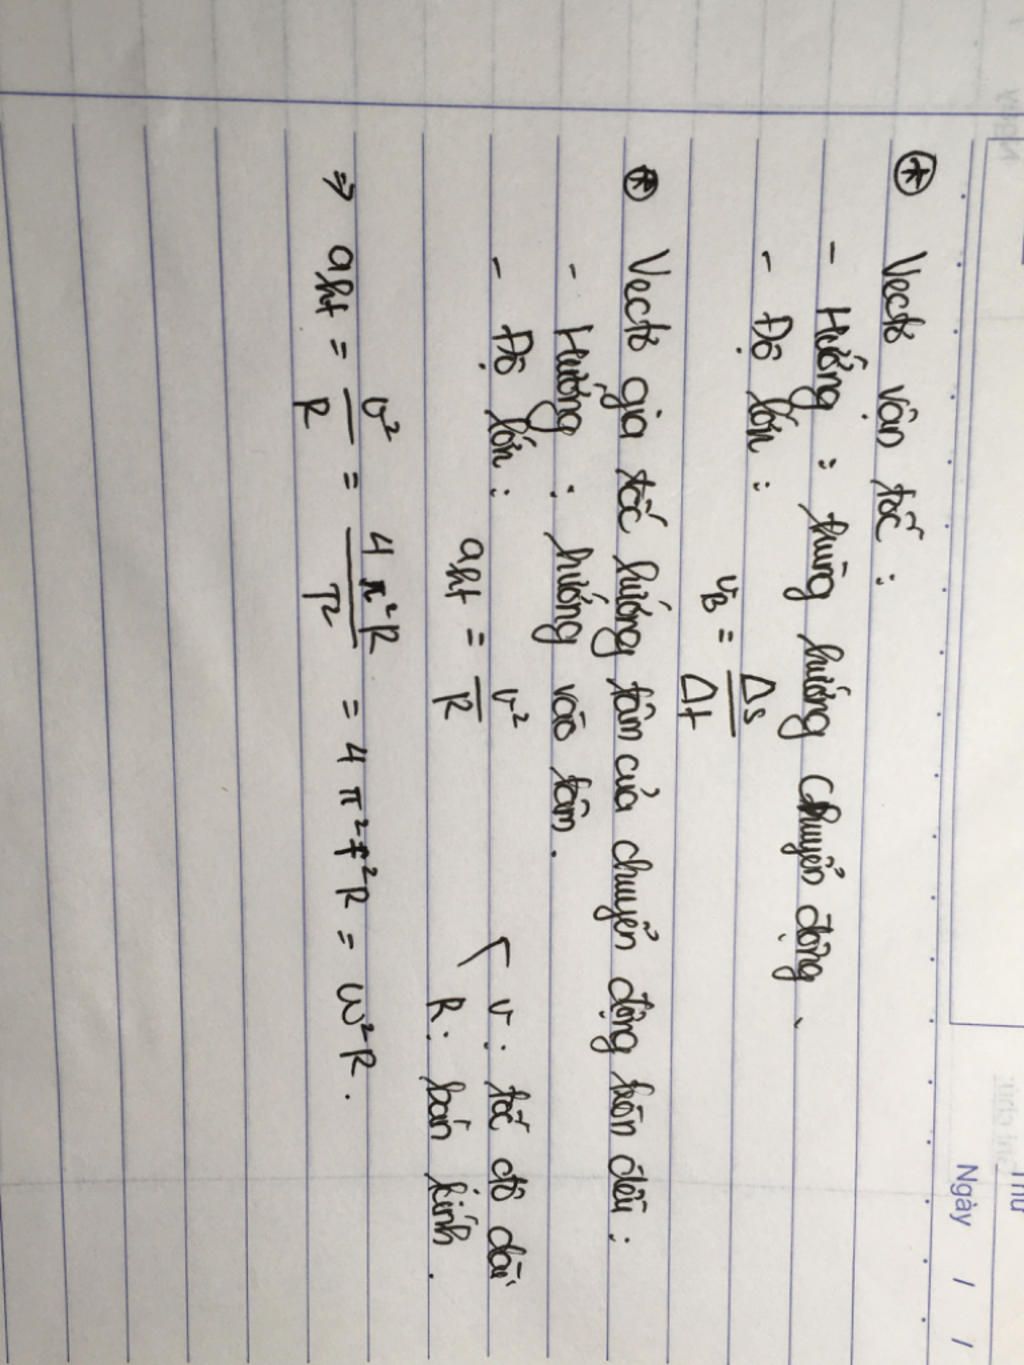 Thứ
Ngày / /
⊛ Vectơ vận tốc :
- Hướng : trùng hướng chuyển động.
- Độ lớn :
v_B = Δs / Δt
⊛ Vectơ gia tốc hướng tâm của chuyển động tròn đều :
- Hướng : hướng vào tâm.
- Độ lớn :
a_ht = v² / R
v : tốc độ dài
R : bán kính.
⇒ a_ht = v² / R = 4π²R / T² = 4π²f²R = ω²R.